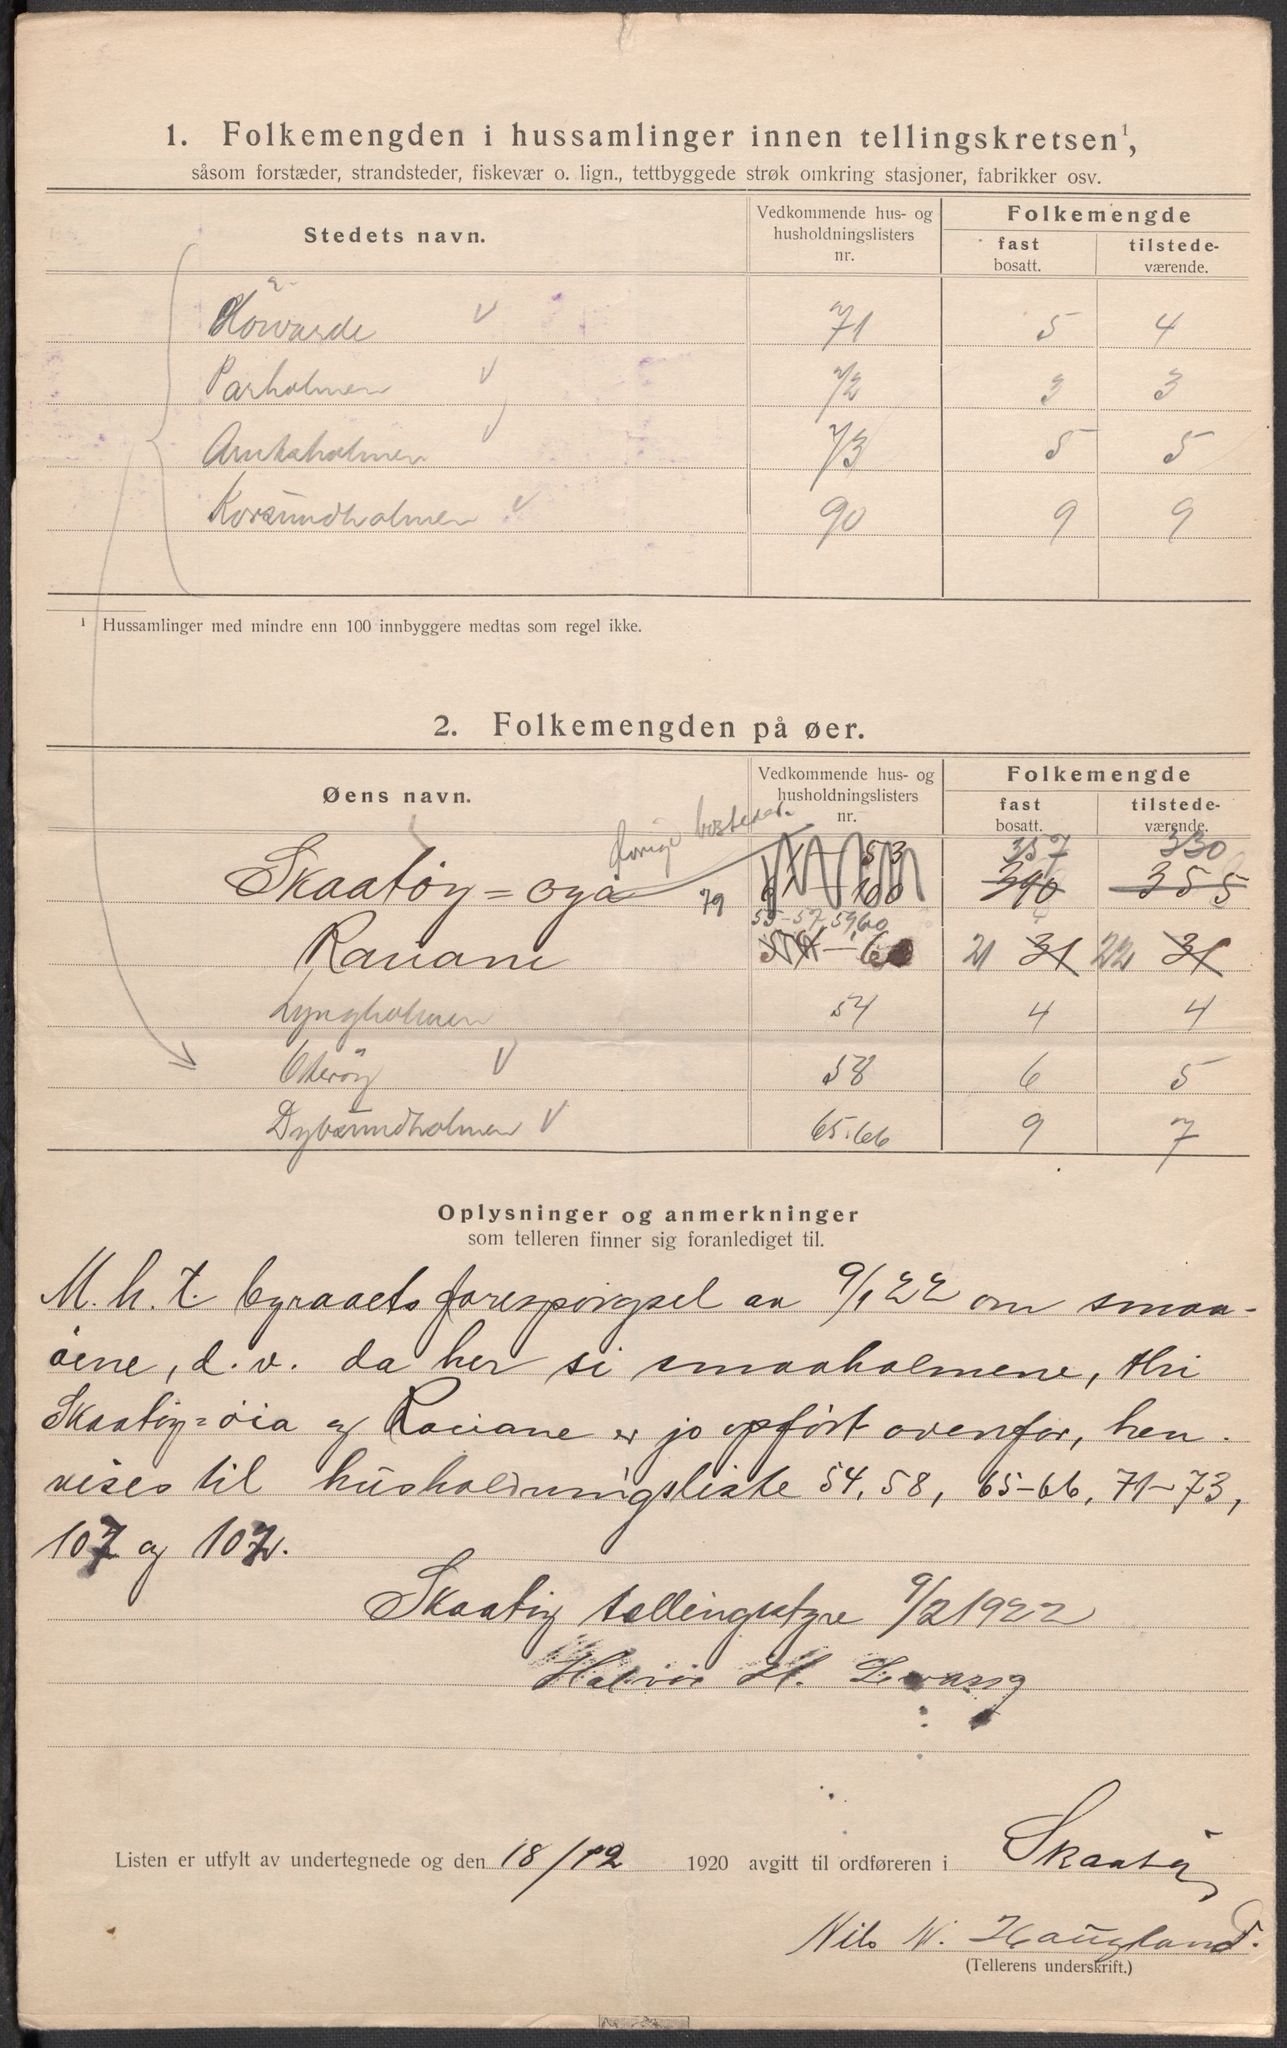 1. Folkemengden i hussamlinger innen tellingskretsen¹,
såsom forstæder, strandsteder, fiskevær o. lign., tettbyggede strøk omkring stasjoner, fabrikker osv.
Stedets navn. Vedkommende hus- og husholdningslisters nr. Folkemengde fast bosatt. tilstede-værende.
71 5 4
Parholmen 72 3 3
Arnholmen 73 5 5
Korsundholmen 90 9 9
¹ Hussamlinger med mindre enn 100 innbyggere medtas som regel ikke.
2. Folkemengden på øer.
Øens navn. Vedkommende hus- og husholdningslisters nr. Folkemengde fast bosatt. tilstede-værende.
øvrige bosteder. 1 — 53 357 330
Skaatøy=øya 79 100 390 355
55-57, 59,60
Rauane 21 31 22 31
Lyngholmen 54 4 4
Oterøy 58 6 5
Dybsundholmen 65.66 9 7
Oplysninger og anmerkninger
som telleren finner sig foranlediget til.
M. h. t. byraaets forespørgsel av 9/1 22 om smaa-
øene, d. v. da her si smaaholmene, thi
Skaatøy=øia og Rauane er jo opført ovenfor, hen-
vises til husholdningsliste 54, 58, 65-66, 71-73,
107 og 107.
Skaatøy tellingsstyre 9/2 1922
Halvor H.
Listen er utfylt av undertegnede og den 18/12 1920 avgitt til ordføreren i Skaatøy
Nils N. Haugland.
(Tellerens underskrift.)